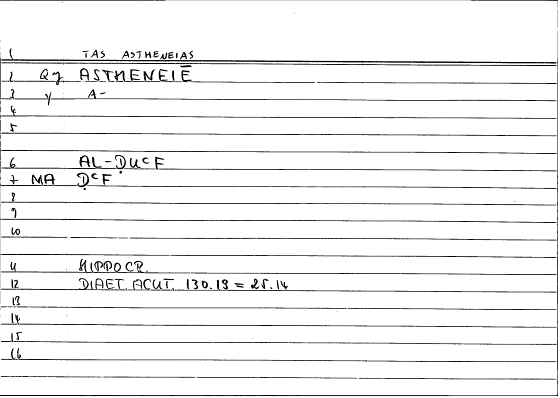 1 TAS ASTHENEIAS
2 Qy ASTHENEIĒ
3 y A-
4
5
6 AL-ḌUᶜF
7 MA ḌᶜF
8
9
10
11 HIPPOCR.
12 DIAET. ACUT. 130.13 = 25.14
13
14
15
16